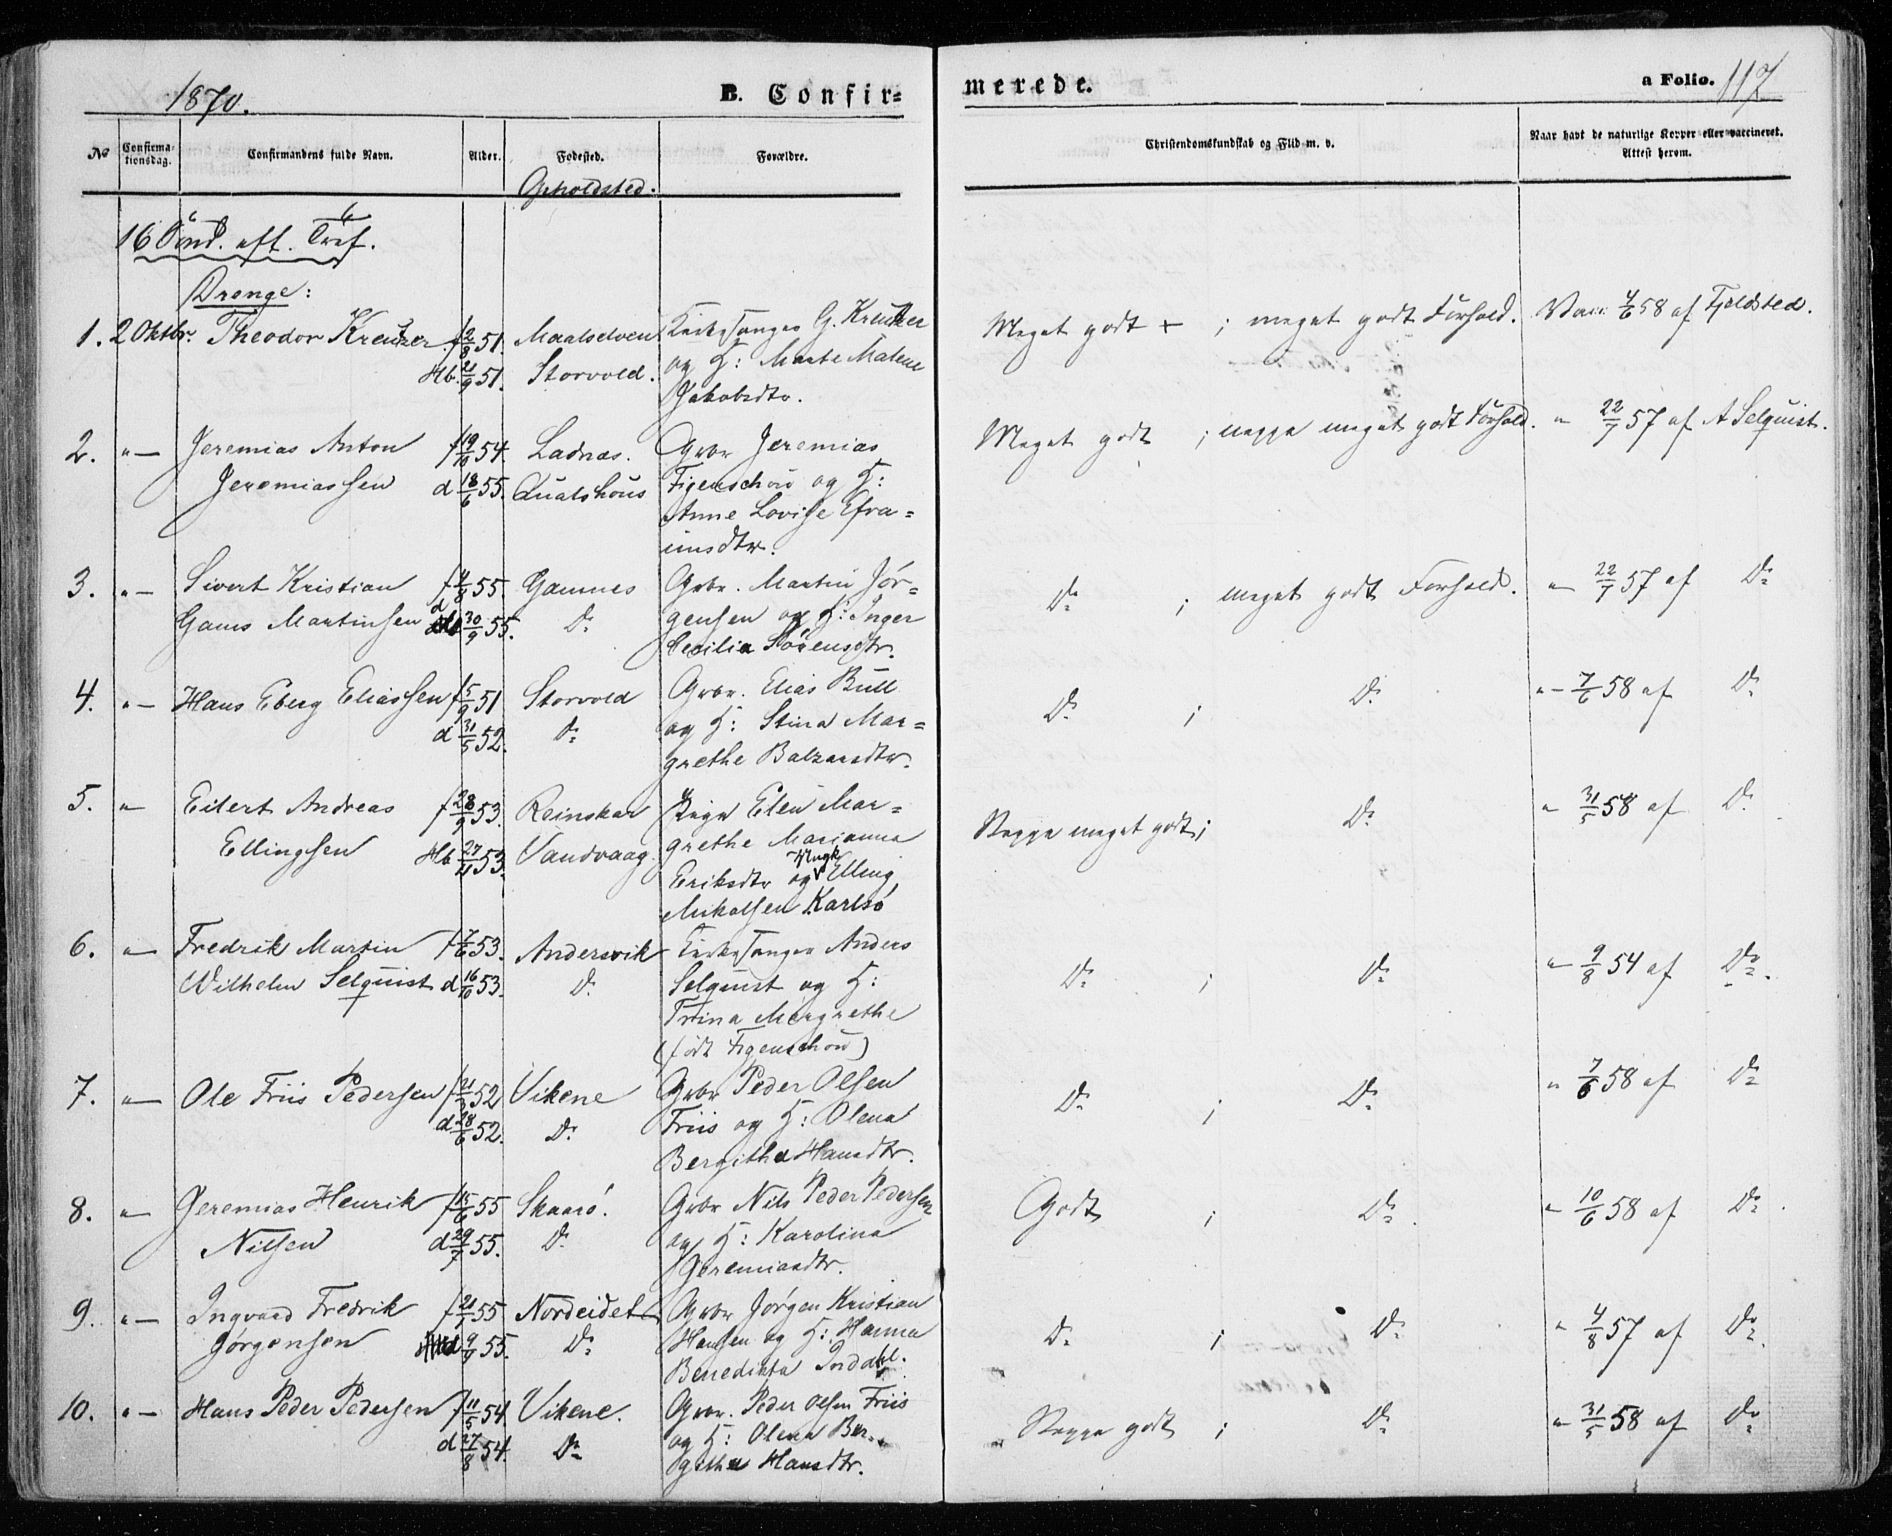 1870.
B. Confir=
merede.
a Folio. 117
No
Confirma-
tionsdag.
Confirmandens fulde Navn.
Alder.
Fodested.
Opholdsted.
Forældre.
Christendomskundskab og Flid m. v.
Naar havt de naturlige Kopper eller vaccineret.
Attest herom.
16 Sönd. eft. Tref.
Drenge:
1. 2 Oktbr. Theodor Kreutzer. f 2/8 51. Maalselven Kirkesanger G. Kreutzer Meget godt + ; meget godt Forhold. Vacc. 4/6 58 af Fjeldsted.
Hb. 21/9 51. Storvold. og H: Marte Matene
Jakobsdtr.
2. "— Jeremias Anton f 19/10 54. Ladnæs. Grbr Jeremias Meget godt ; neppe meget godt Forhold. " 22/7 57 af A Selquist.
Jeremiassen d 18/6 55. Qualshous Figenschou og H:
Anne Lovise Efra=
imsdtr.
3. "— Sivert Kristian f 4/8 55 Gamnes Grbr. Martin Jör= D: ; meget godt Forhold. " 22/7 57 af D:
Gams Martinsen d 30/9 55. D: gensen og H: Inger
Cecilia Sörensdtr.
4. "— Hans Eberg Eliassen f 5/9 51 Storvold Grbr. Elias Bull D: ; D: "— 7/6 58 af D:
d 31/5 52. D: og H: Stina Mar=
grethe Balzarsdtr.
5. "— Eilert Andreas f 28/9 53. Reinskar Pige Elen Mar= Neppe meget godt; D: " 31/5 58 af D:
Ellingsen Hb 27/11 53. Vandvaag. grethe Marianna
Eriksdtr og Ungk Elling
Mikalsen Karlsö
6. "— Fredrik Martin f 7/6 53. Andersvik Kirkesanger Anders D: ; D: "— 9/8 54 af D:.
Wilhelm Selquist d 16/10 53. D: Selquist og H:
Trina Margrethe
(födt Figenschou)
7. "— Ole Friis Pedersen f 21/3 52 Vikene Grbr Peder Olsen D: ; D: " 7/6 58 af D:
d 28/6 52. D: Friis og H: Olena
Bergitha Hansdtr.
8. "— Jeremias Henrik f 15/6 55 Skaarö. Grbr Nils Peder Pedersen Godt ; D:. " 10/6 58 af D:.
Nilsen d 29/7 55. D: og H: Karolina
Jeremiasdtr.
9. "— Ingvard Fredrik f 21/7 55 Nordeidet Grbr Jörgen Kristian D: ; D: " 4/8 57 af D:
Jörgensen d 9/9 55. D: Hansen og H: Hanna
Benedikta Inddahl.
10. "— Hans Peder Pedersen f 11/5 54. Vikene. Grbr. Peder Olsen Friis Neppe godt ; D: " 31/5 58 af D:
d 27/8 54. D: og H: Olena Ber=
githa Hansdtr.